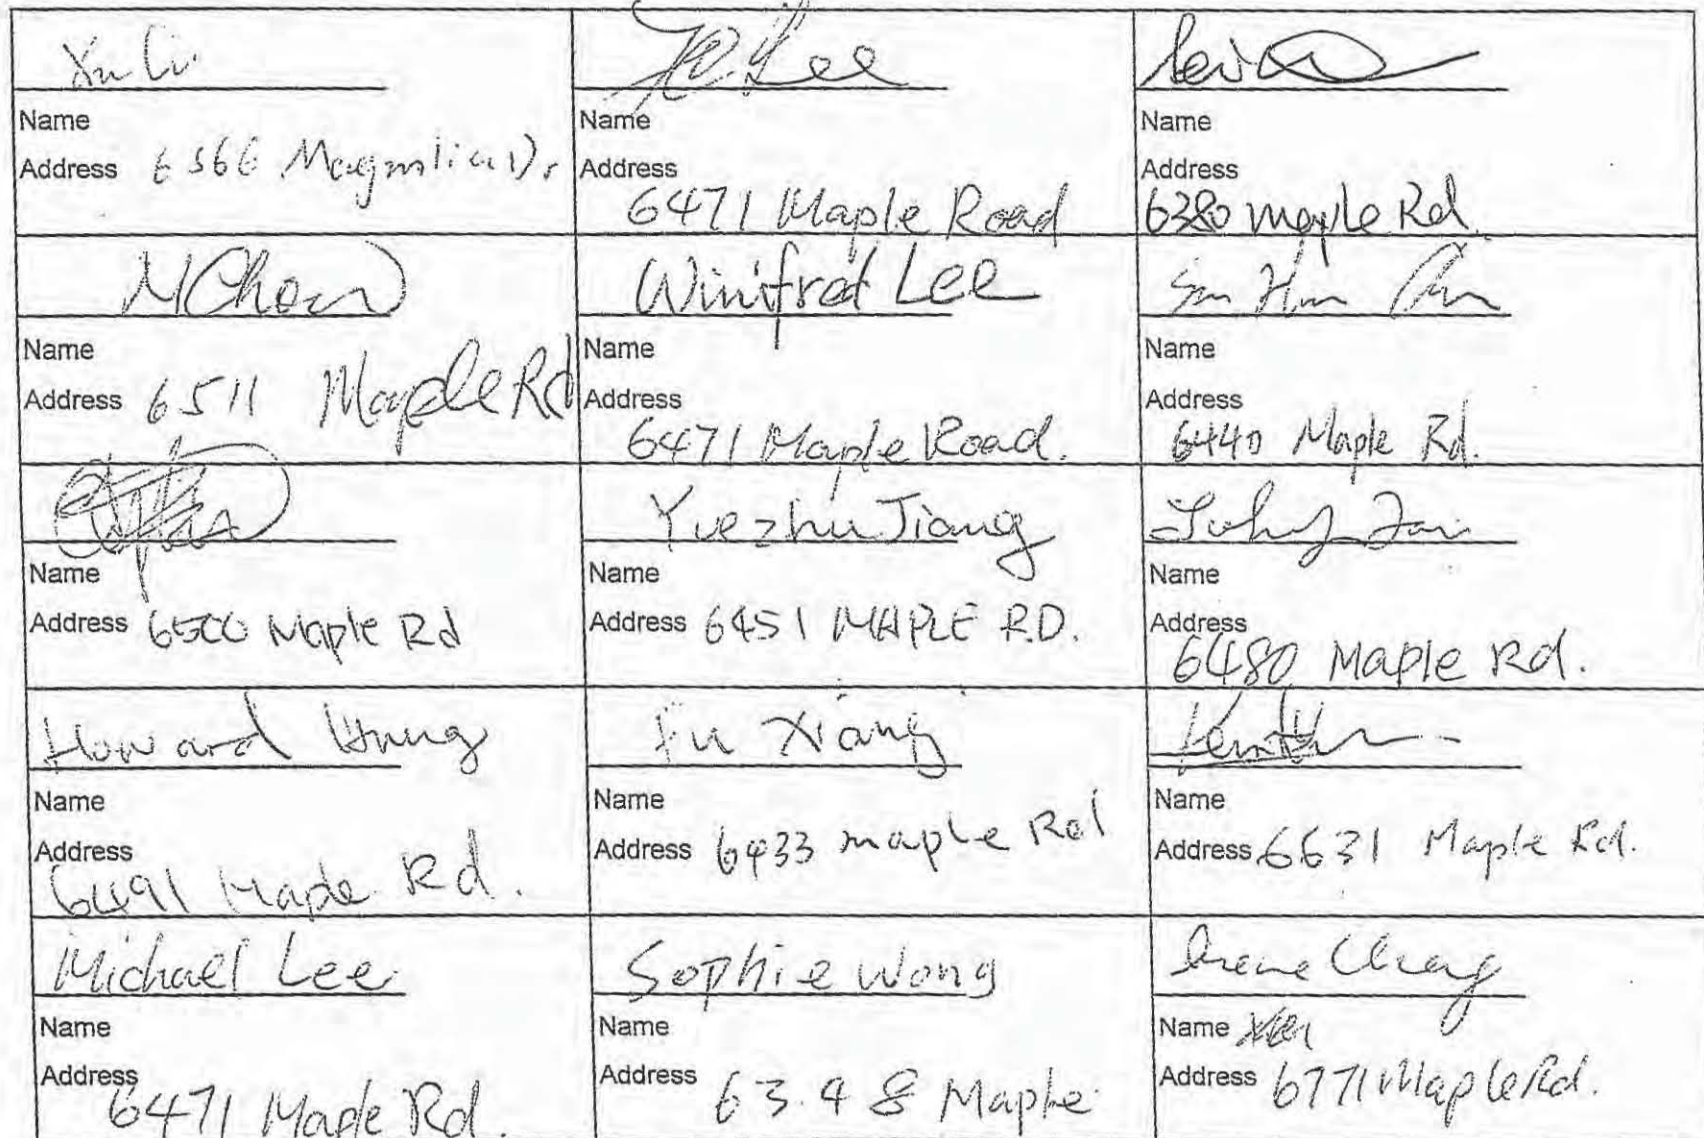 Name
Address 6566 Magnolia Dr
Lee
Name
Address
6471 Maple Road
Name
Address
6380 Maple Rd.
MChan
Name
Address 6511 Maple Rd
Winifred Lee
Name
Address
6471 Maple Road.
Name
Address
6440 Maple Rd.
Name
Address 6500 Maple Rd
Yuezhu Jiang
Name
Address 6451 MAPLE RD.
Name
Address
6480 Maple Rd.
Howard Hung
Name
Address
6491 Maple Rd.
Fu Xiang
Name
Address 6433 maple Rd
Name
Address 6631 Maple Rd.
Michael Lee
Name
Address
6471 Maple Rd.
Sophie Wong
Name
Address 63.48 Maple
Irene Cheng
Name
Address 6771 Maple Rd.